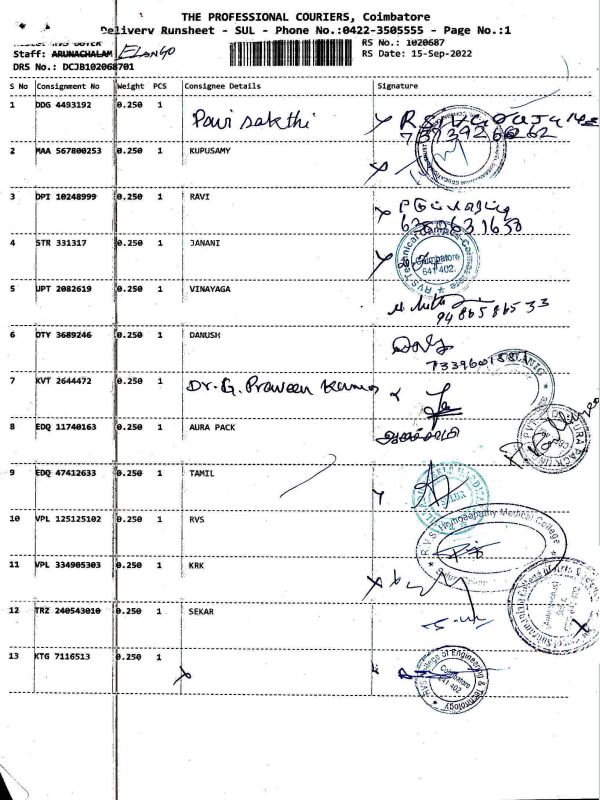 THE PROFESSIONAL COURIERS, Coimbatore
Delivery Runsheet - SUL - Phone No.:0422-3505555 - Page No.:1
RS No.: 1020687
Staff: ARUNACHALAM ELANGO RS Date: 15-Sep-2022
DRS No.: DCJB102068701
S No Consignment No Weight PCS Consignee Details Signature
1 DDG 4493192 0.250 1 Pavi sakthi
2 MAA 567800253 0.250 1 KUPUSAMY
3 DPI 10248999 0.250 1 RAVI
4 STR 331317 0.250 1 JANANI
RVS Technical Campus-Coimbatore
Coimbatore
641 402.
5 UPT 2082619 0.250 1 VINAYAGA
94865 86533
6 DTY 3689246 0.250 1 DANUSH
7 KVT 2644472 0.250 1 Dr. G. Praveen Kumar
8 EDQ 11740163 0.250 1 AURA PACK
9 EDQ 47412633 0.250 1 TAMIL
10 VPL 125125102 0.250 1 RVS
RVS Homoeopathy Medical College
11 VPL 334905303 0.250 1 KRK
12 TRZ 240543010 0.250 1 SEKAR
13 KTG 7116513 0.250 1
RVS College of Engineering & Technology
Coimbatore
641 402